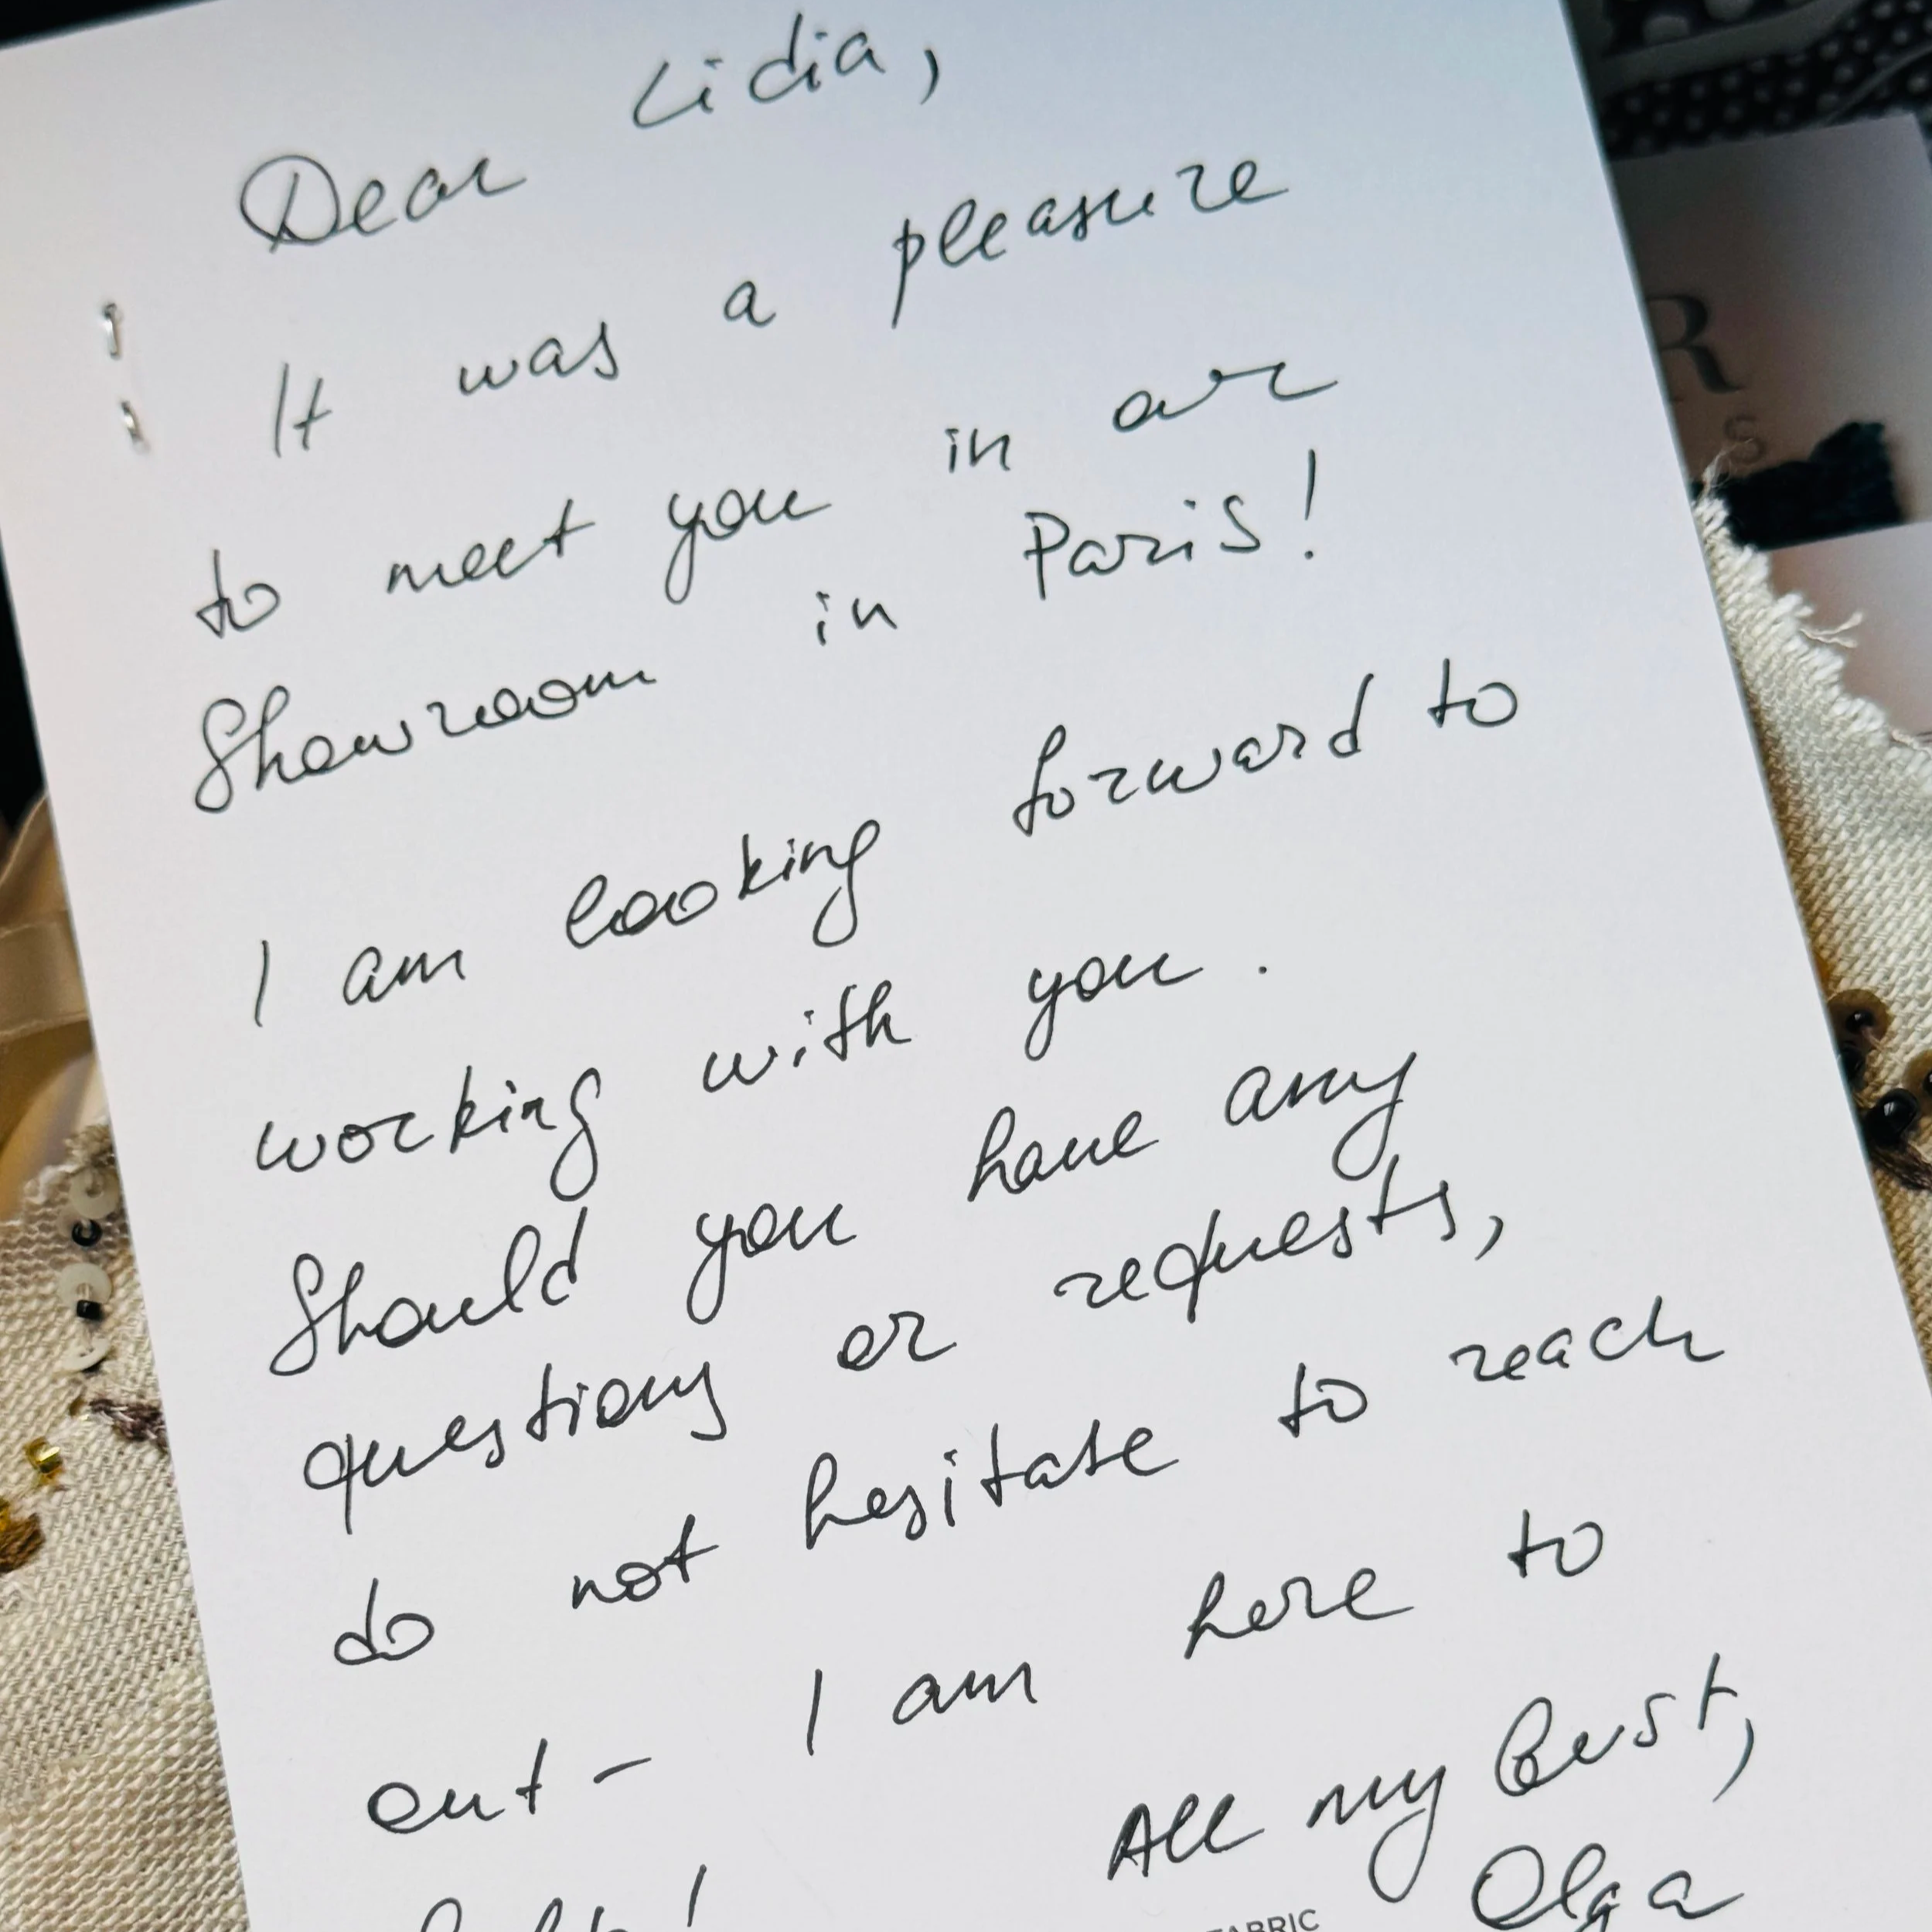 Dear Lidia,
It was a pleasure
to meet you in our
Showroom in Paris!
I am looking forward to
working with you.
Should you have any
questions or requests,
do not hesitate to reach
out - I am here to
All my best,
Olga
R
S